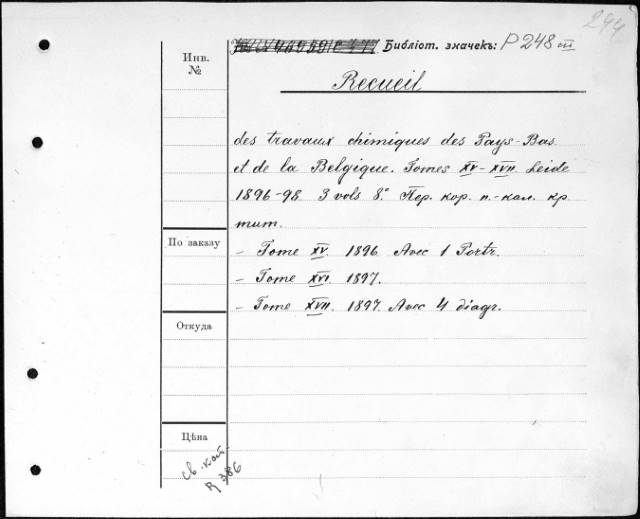 294
Библіот. значекъ: P 248 III
Инв.
№
Recueil
des travaux chimiques des Pays-Bas
et de la Belgique. Tomes XV-XVII. Leide
1896-98. 3 vols 8.° Пер. кор. п.-кал. кр
тит.
По заказу
- Tome XV. 1896. Avec 1 Portr.
- Tome XVI. 1897.
- Tome XVII. 1897. Avec 4 diagr.
Откуда
Цѣна
св. кат
R 386